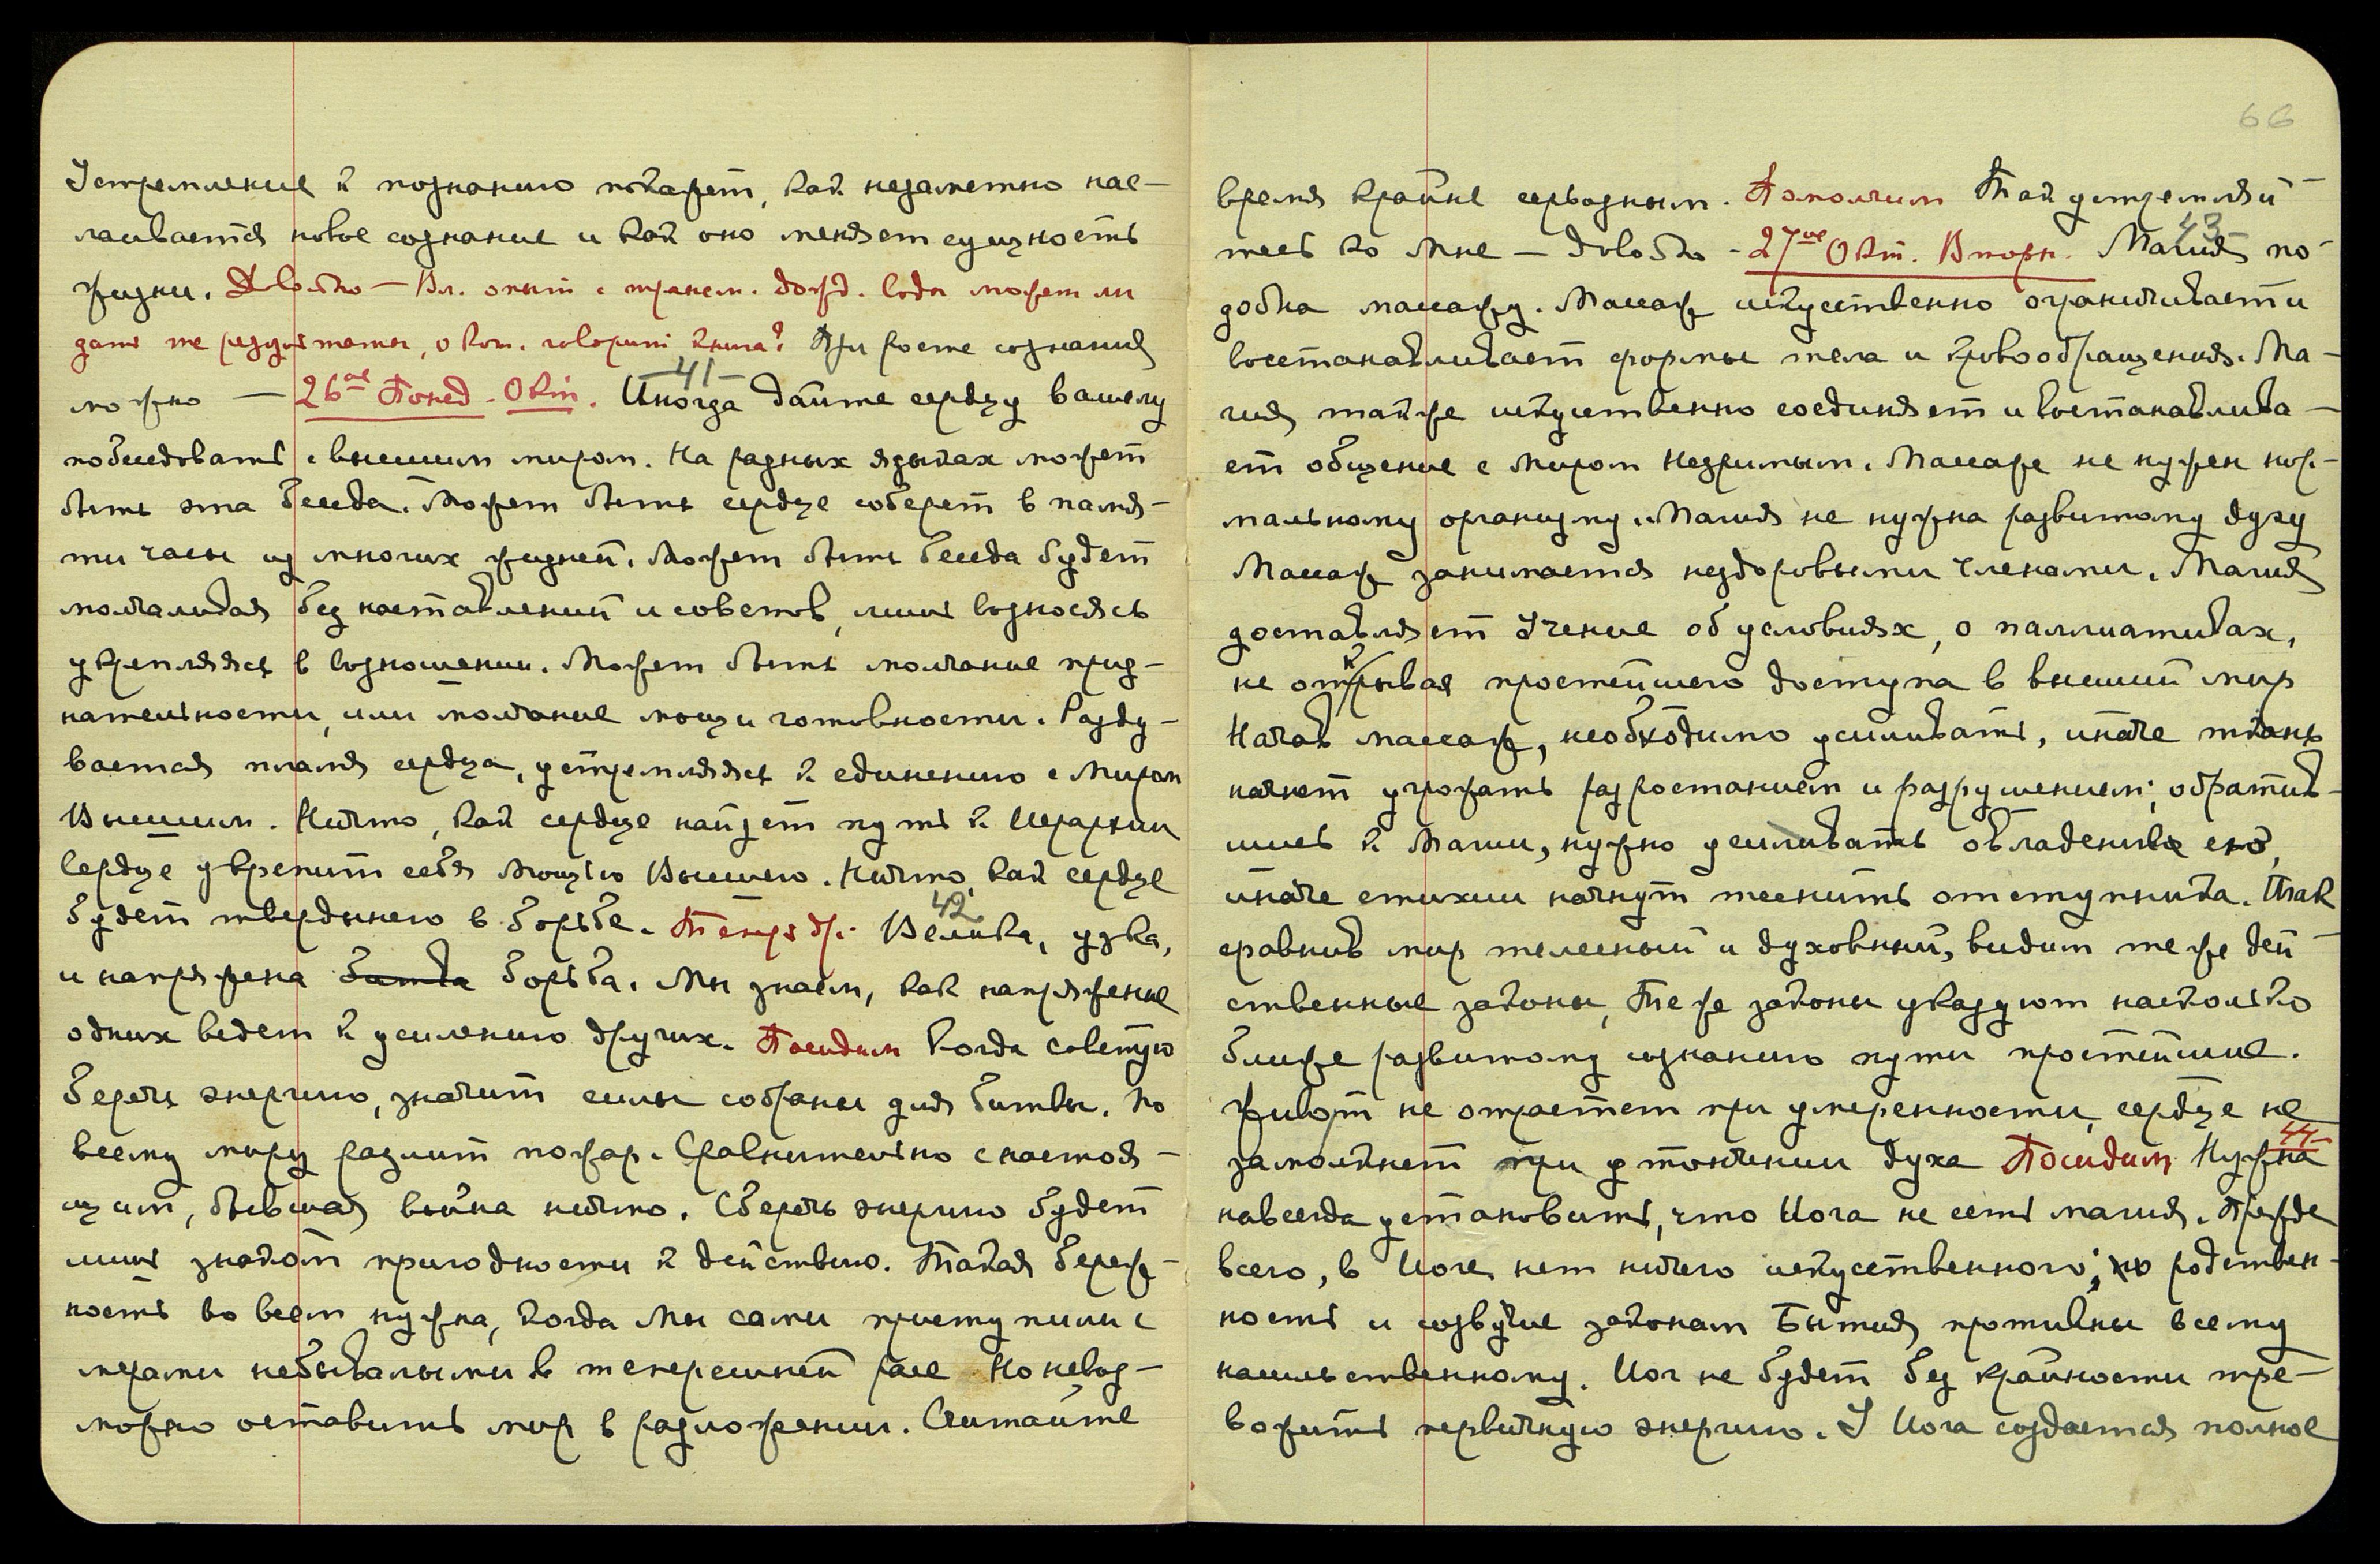 Устремление к познанию покажет, как незаметно нас-
лаивается новое сознание и как оно меняет сущность
жизни. Довольно — Вл. опыт с транем. дожд. воды может ли
дать те результаты, о кот. говорит книга? При росте сознания
можно — 26ое Понед. Окт. Иногда дайте сердцу вашему
41
побеседовать с высшим миром. На разных языках может
быть эта беседа. Может быть сердце соберет в памя-
ти часы из многих жизней. Может быть беседа будет
молчаливая без наставлений и советов, лишь возносясь
укрепляясь в возношении. Может быть молчание приз-
нательности, или молчание мощи готовности. Разду-
вается пламя сердца, устремляясь к единению с Миром
Высшим. Ничто, как сердце найдет путь к Иерархии
Сердце укрепит себя Мощью Высшего. Ничто, как сердце
будет твердынею в борьбе. Теперь др. Велика, узка,
42
и напряжена битва борьба. Мы знаем, как напряжение
одних ведет к усилению других. Посидим Когда советую
беречь энергию, значит силы собраны для битвы. По
всему миру разлит пожар. Сравнительно с настоя-
щим, бывшая война ничто. Сберечь энергию будет
лишь знаком пригодности к действию. Такая береж-
ность во всем нужна, когда Мы сами приступили с
мерами небывалыми в теперешней расе Но невоз-
можно оставить мир в разложении. Считайте
66
время крайне серьозным. Помолчим Так устремляй-
тесь ко Мне — довольно - 27ое Окт. Вторн. Магия по-
43
добна массажу. Массаж искусственно ограничивает и
восстанавливает формы тела и кровообращения. Ма-
гия также искусственно соединяет и востанавлива-
ет общение с Миром Незримым. Массаж не нужен нор-
мальному организму. Магия не нужна развитому духу
Массаж занимается нездоровыми членами. Магия
доставляет Учение об условиях, о паллиативах,
не открывая простейшего доступа в высший мир
Начав массаж, необходимо усиливать, иначе ткань
начнет угрожать разростанием и разрушением; обратив-
шись к Магии, нужно усиливать овладение ею,
иначе стихии начнут теснить отступника. Итак
сравнив мир телесный и духовный, видим те же дей-
ственные законы, Те же законы указуют насколько
ближе развитому сознанию пути простейшие.
Живот не отрастет при умеренности, сердце не
замолкнет при утончении духа Посидим Нужно
44
навсегда установить, что Йога не есть магия. Прежде
всего, в Йоге нет ничего искусственного; но родствен-
ность и созвучие законам Бытия противны всему
насильственному. Йог не будет без крайности тре-
вожить первичную энергию. У Йога создается полное